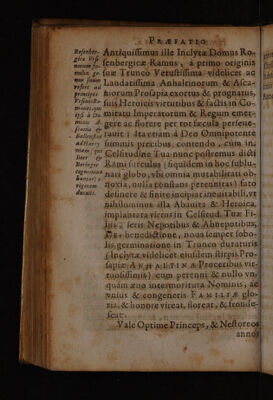 PRÆFATIO
Antiquissimus ille Inclytæ Domus Ro-
senbergicæ Ramus, à primo originis
suæ Trunco Vetustissima videlicet ac
Laudatissima Anhaltinorum & Asca-
niorum Prosapia exortus & prognatus,
suis Heroicis virtutibus & factis in Co-
mitatu Imperatorum & Regum emer-
gere ac florere per tot sæcula perseve-
ravit: Ita etiam à Deo Omnipotente
summis precibus contendo, cum in
Celsitudine Tua nunc postremus dicti
Rami surculus (siquidem in hoc sublu-
nati globo, ubi omnia mutabilitati ob-
noxia, nulla constans perennitas) fato
desinere & finire incipiat ineuitabili, vt
nihilominus illa Abauita & Heroica,
implantata virtus in Celsitud. Tuæ Fi-
liis, seris Nepotibus & Abnepotibus,
DEI benedictione, noua semper sobo-
lis germinatione in Trunco duraturis
(Inclytæ videlicet eiusdem stirpis Pro-
sapiæ ANHALTINÆ Proceribus vir-
tuosissimis) cum perenni & nullo vn-
quàm æuo intermoritura Nominis, ac
vnius & congeneris FAMILIÆ glo-
ria, & honore viteat, floreat, & fronde-
scat.
Vale Optime Princeps, & Nestoreos
annos
Rosenber-
gica Vrsi-
norum fa-
milia ge-
nus suum
refert ad
principes
Ascania &
Ballenstad
Beer &
Beringer
cognomina
originem
ducunt.